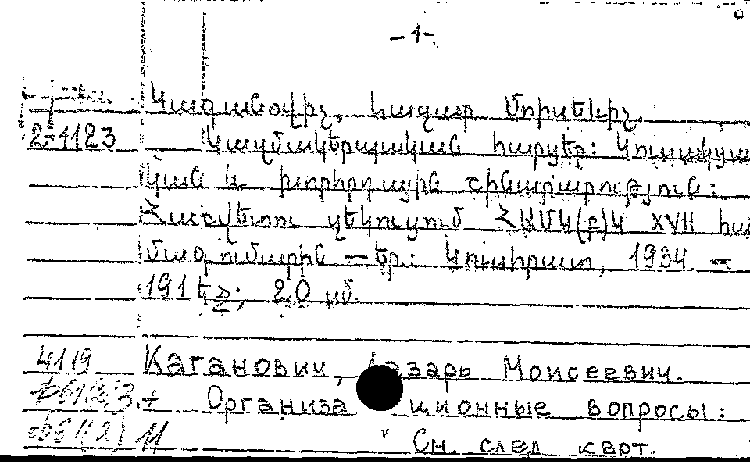 -1-
Կագանովիչ, Լազար Մոիսեևիչ.
2-4123 Կազմակերպական հարցեր: Կուսակցա
կան և խորհրդային շինարարություն:
Հաշվետու զեկուցում ՀԱՄԿ(բ)Կ XVII հա
մագումարին — Եր.: Կուսհրատ, 1934 –
191 էջ; 20 սմ.
4119 Каганович, Лазарь Моисеевич.
Организационные вопросы:
См. след карт.